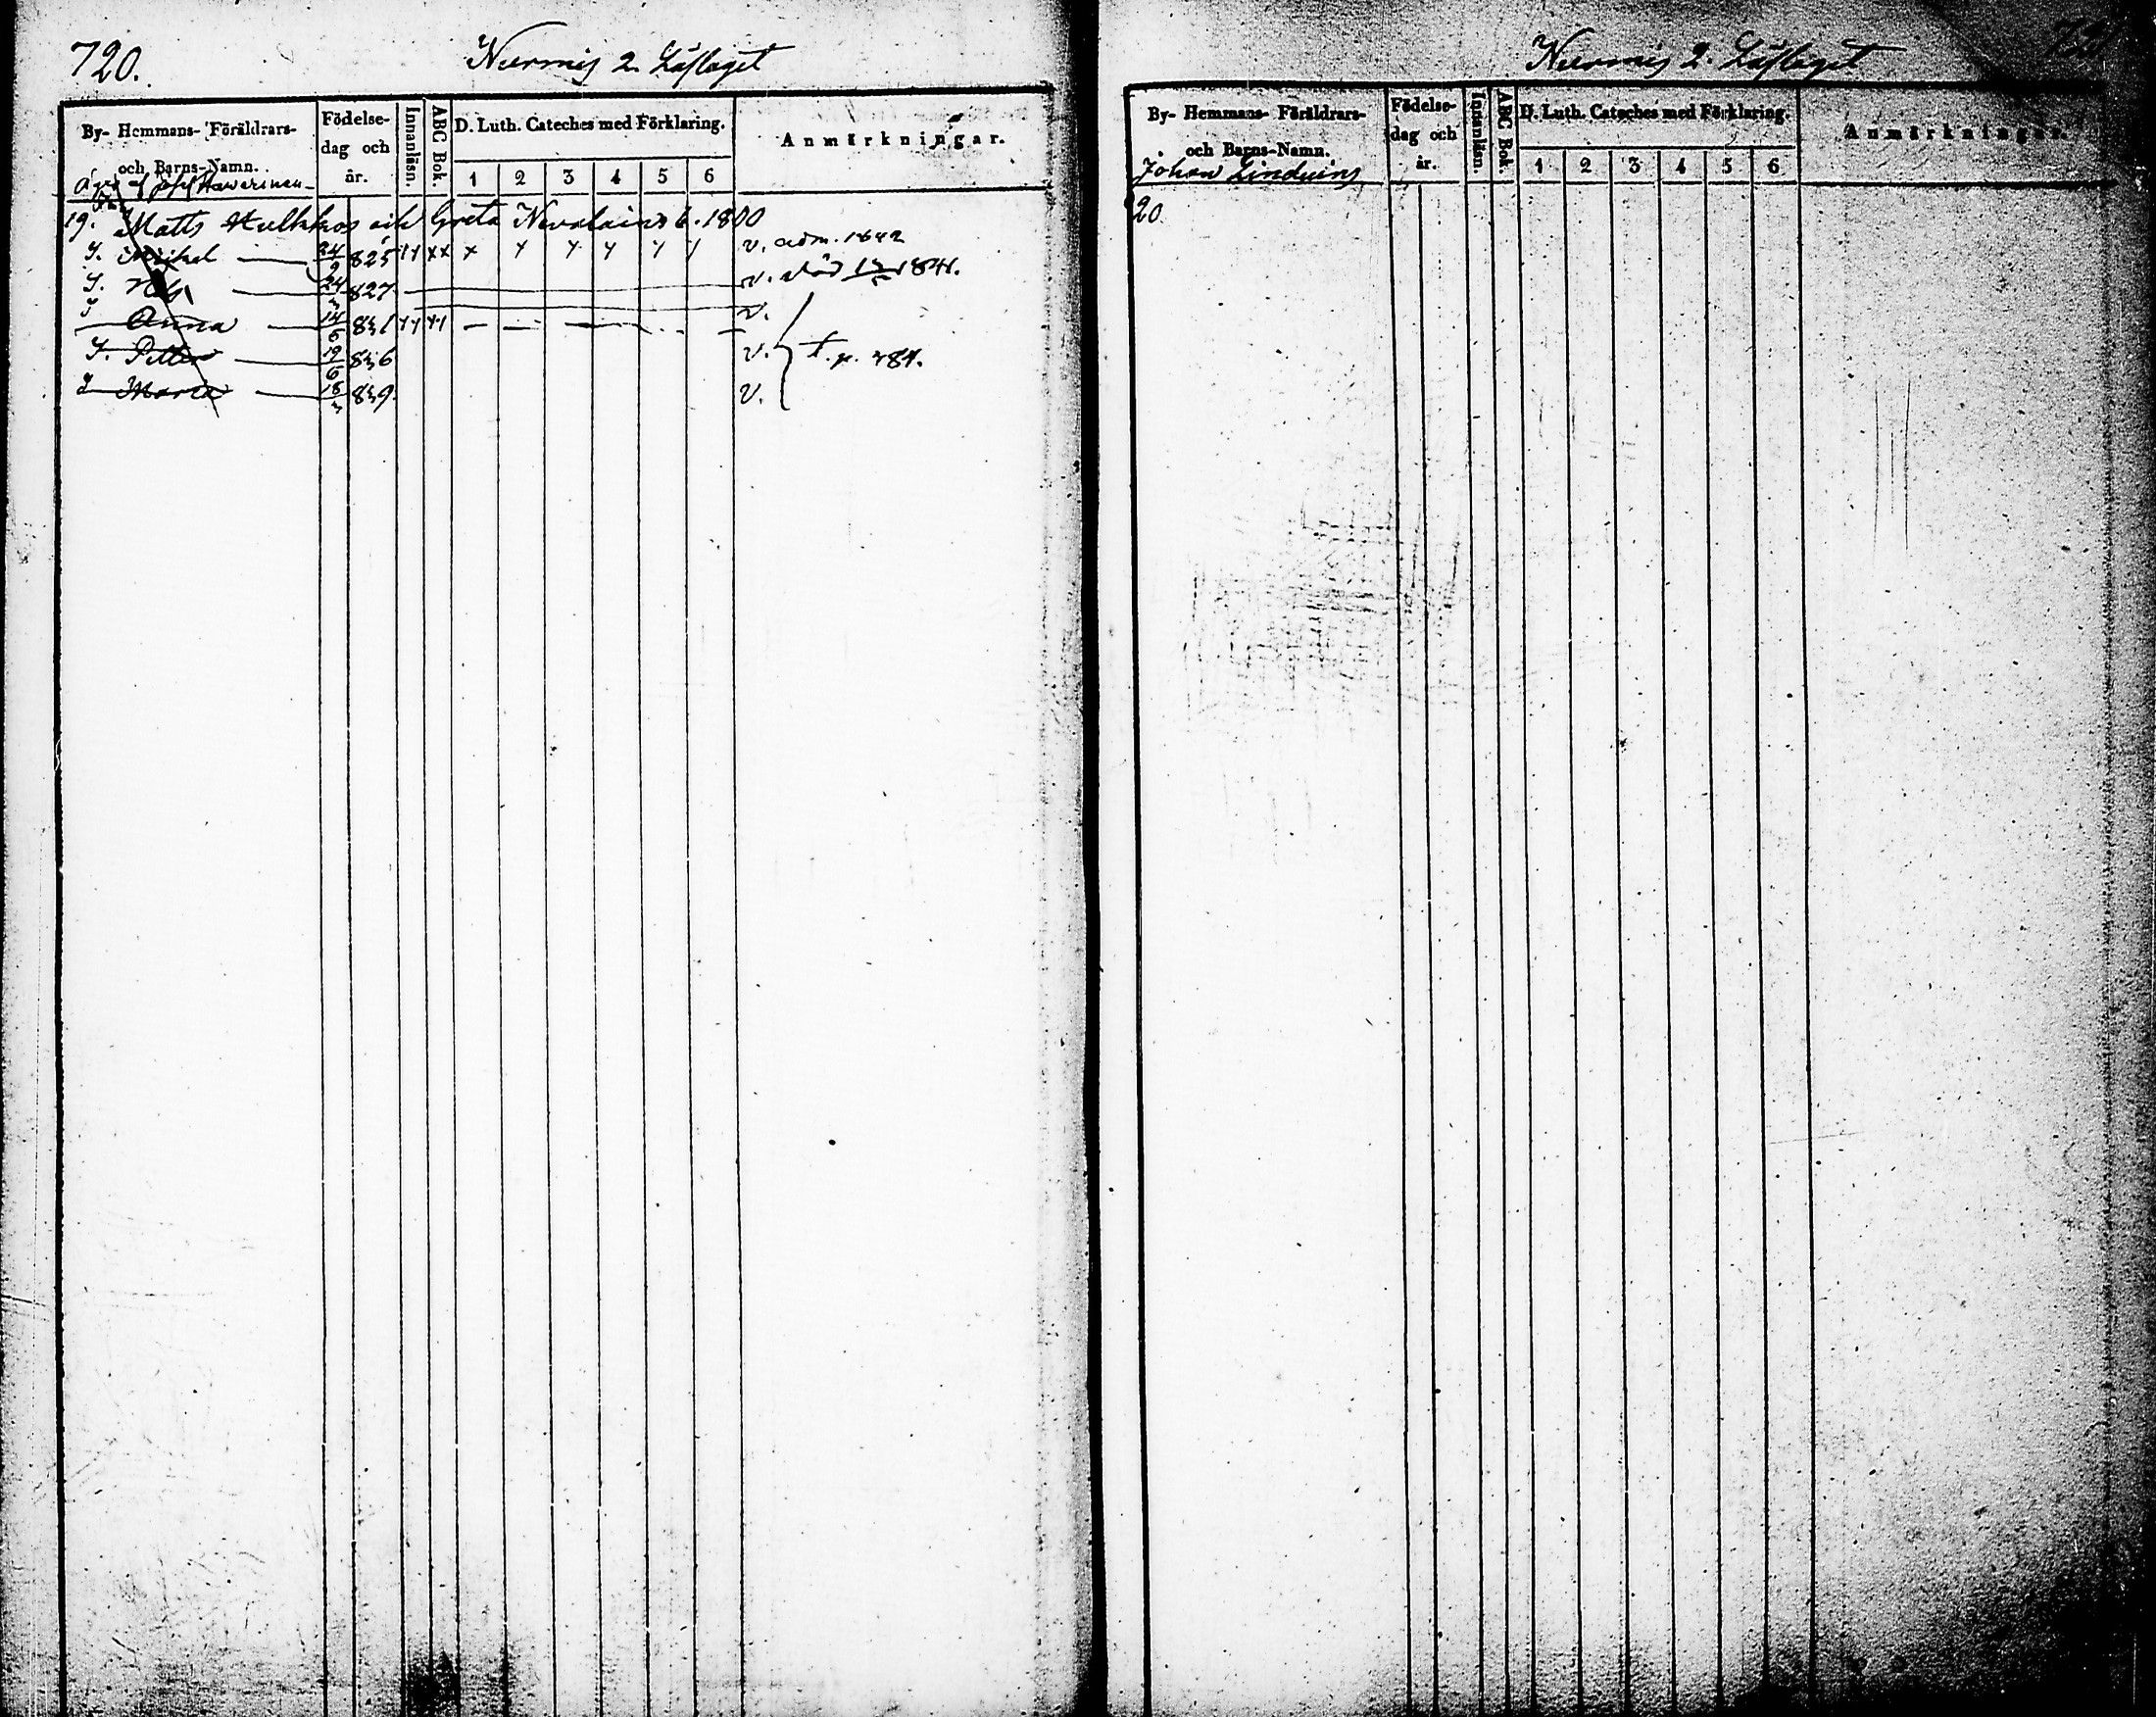 720.
Nurmis 2. Läslaget
By- Hemmans- Föräldrars-
och Barns-Namn.
Födelse-
dag och
år.
Innanläsn.
ABC Bok.
D. Luth. Cateches med Förklaring.
1 2 3 4 5 6
Anmärkningar.
19. Matts Hulkkos och Greta Nevalains b. 1800
S. Michel 24/9 825 v. adm. 1842
S. Nils 24 827 v. död 1841.
Anna 14/5 831 v.
S. Petter 19/6 836 v. t. p. 384.
Maria 18/3 839. v.
721
Nurmis 2. Läslaget
By- Hemmans- Föräldrars-
och Barns-Namn.
Födelse-
dag och
år.
Innanläsn.
ABC Bok.
D. Luth. Cateches med Förklaring.
1 2 3 4 5 6
Anmärkningar.
Johan
20.